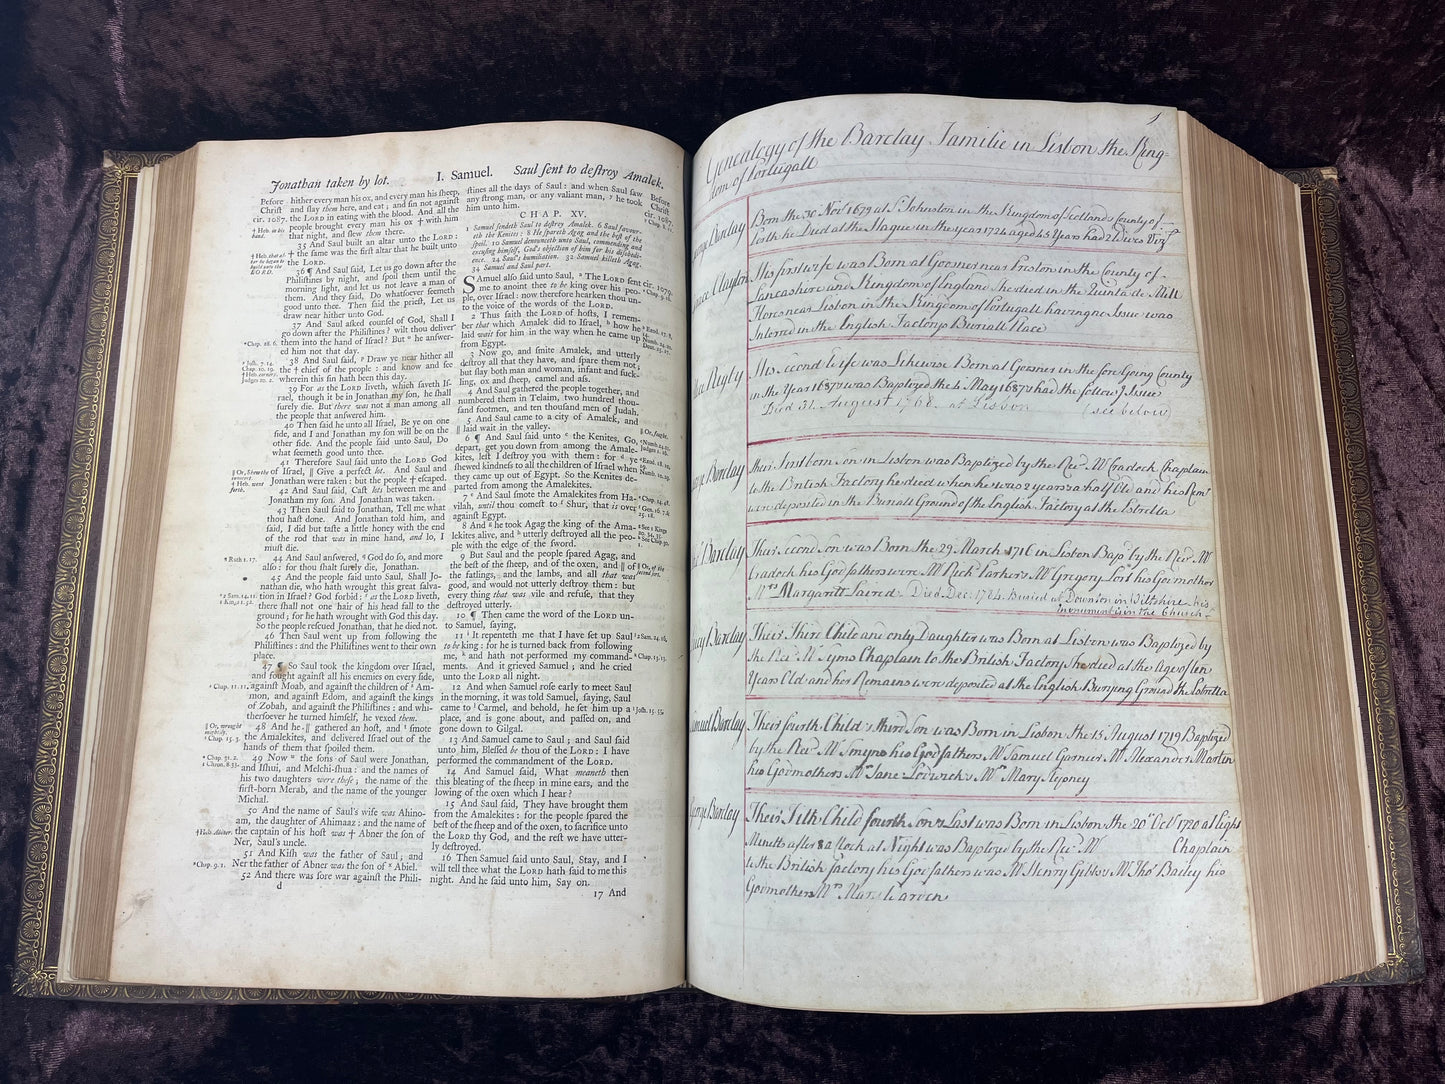 Jonathan taken by lot. I. Samuel. Saul ſent to deſtroy Amalek.
Before
Chriſt
cir. 1087.
hither every man his ox, and every man his ſheep,
and ſlay them here, and eat; and ſin not againſt
the LORD in eating with the blood. And all the
people brought every man his ox † with him
that night, and ſlew them there.
35 And Saul built an altar unto the LORD:
† the ſame was the firſt altar that he built unto
the LORD.
36 ¶ And Saul ſaid, Let us go down after the
Philiſtines by night, and ſpoil them until the
morning light, and let us not leave a man of
them. And they ſaid, Do whatſoever ſeemeth
good unto thee. Then ſaid the prieſt, Let us
draw near hither unto God.
37 And Saul asked counſel of God, Shall I
go down after the Philiſtines? wilt thou deliver
them into the hand of Iſrael? But he anſwer-
ed him not that day.
38 And Saul ſaid, Draw ye near hither all
the † chief of the people: and know and ſee
wherein this ſin hath been this day.
39 For as the LORD liveth, which ſaveth Iſ-
rael, though it be in Jonathan my ſon, he ſhall
ſurely die. But there was not a man among all
the people that anſwered him.
40 Then ſaid he unto all Iſrael, Be ye on one
ſide, and I and Jonathan my ſon will be on the
other ſide. And the people ſaid unto Saul, Do
what ſeemeth good unto thee.
41 Therefore Saul ſaid unto the LORD God
of Iſrael, ‖ Give a perfect lot. And Saul and
Jonathan were taken: but the people † eſcaped.
42 And Saul ſaid, Caſt lots between me and
Jonathan my ſon. And Jonathan was taken.
43 Then Saul ſaid to Jonathan, Tell me what
thou haſt done. And Jonathan told him, and
ſaid, I did but taſte a little honey with the end
of the rod that was in mine hand, and lo, I
muſt die.
44 And Saul anſwered, God do ſo, and more
alſo: for thou ſhalt ſurely die, Jonathan.
45 And the people ſaid unto Saul, Shall Jo-
nathan die, who hath wrought this great ſalva-
tion in Iſrael? God forbid: as the LORD liveth,
there ſhall not one hair of his head fall to the
ground; for he hath wrought with God this day.
So the people reſcued Jonathan, that he died not.
46 Then Saul went up from following the
Philiſtines: and the Philiſtines went to their own
place.
47 ¶ So Saul took the kingdom over Iſrael,
and fought againſt all his enemies on every ſide,
againſt Moab, and againſt the children of Am-
mon, and againſt Edom, and againſt the kings
of Zobah, and againſt the Philiſtines: and whi-
therſoever he turned himſelf, he vexed them.
48 And he ‖ gathered an hoſt, and ſmote
the Amalekites, and delivered Iſrael out of the
hands of them that ſpoiled them.
49 Now the ſons of Saul were Jonathan,
and Iſhui, and Melchi-ſhua: and the names of
his two daughters were theſe; the name of the
firſt-born Merab, and the name of the younger
Michal.
50 And the name of Saul's wife was Ahino-
am, the daughter of Ahimaaz: and the name of
the captain of his hoſt was † Abner the ſon of
Ner, Saul's uncle.
51 And Kiſh was the father of Saul; and
Ner the father of Abner was the ſon of Abiel.
52 And there was ſore war againſt the Phili-
d
ſtines all the days of Saul: and when Saul ſaw
any ſtrong man, or any valiant man, he took
him unto him.
CHAP. XV.
1 Samuel ſendeth Saul to deſtroy Amalek. 6 Saul favour-
eth the Kenites: 8 He ſpareth Agag and the beſt of the
ſpoil. 10 Samuel denounceth unto Saul, commending and
excuſing himſelf, God's rejection of him for his diſobedi-
ence. 24 Saul's humiliation. 32 Samuel killeth Agag.
34 Samuel and Saul part.
Samuel alſo ſaid unto Saul, The LORD ſent
me to anoint thee to be king over his peo-
ple, over Iſrael: now therefore hearken thou un-
to the voice of the words of the LORD.
2 Thus ſaith the LORD of hoſts, I remem-
ber that which Amalek did to Iſrael, how he
laid wait for him in the way when he came up
from Egypt.
3 Now go, and ſmite Amalek, and utterly
deſtroy all that they have, and ſpare them not;
but ſlay both man and woman, infant and ſuck-
ling, ox and ſheep, camel and aſs.
4 And Saul gathered the people together, and
numbered them in Telaim, two hundred thou-
ſand footmen, and ten thouſand men of Judah.
5 And Saul came to a city of Amalek, and
‖ laid wait in the valley.
6 ¶ And Saul ſaid unto the Kenites, Go,
depart, get you down from among the Amale-
kites, leſt I deſtroy you with them: for ye
ſhewed kindneſs to all the children of Iſrael when
they came up out of Egypt. So the Kenites de-
parted from among the Amalekites.
7 And Saul ſmote the Amalekites from Ha-
vilah, until thou comeſt to Shur, that is over
againſt Egypt.
8 And he took Agag the king of the Ama-
lekites alive, and utterly deſtroyed all the peo-
ple with the edge of the ſword.
9 But Saul and the people ſpared Agag, and
the beſt of the ſheep, and of the oxen, and ‖ of
the fatlings, and the lambs, and all that was
good, and would not utterly deſtroy them: but
every thing that was vile and refuſe, that they
deſtroyed utterly.
10 ¶ Then came the word of the LORD un-
to Samuel, ſaying,
11 It repenteth me that I have ſet up Saul
to be king: for he is turned back from following
me, and hath not performed my command-
ments. And it grieved Samuel; and he cried
unto the LORD all night.
12 And when Samuel roſe early to meet Saul
in the morning, it was told Samuel, ſaying, Saul
came to Carmel, and behold, he ſet him up a
place, and is gone about, and paſſed on, and
gone down to Gilgal.
13 And Samuel came to Saul; and Saul ſaid
unto him, Bleſſed be thou of the LORD: I have
performed the commandment of the LORD.
14 And Samuel ſaid, What meaneth then
this bleating of the ſheep in mine ears, and the
lowing of the oxen which I hear?
15 And Saul ſaid, They have brought them
from the Amalekites: for the people ſpared the
beſt of the ſheep and of the oxen, to ſacrifice unto
the LORD thy God, and the reſt we have utter-
ly deſtroyed.
16 Then Samuel ſaid unto Saul, Stay, and I
will tell thee what the LORD hath ſaid to me this
night. And he ſaid unto him, Say on.
17 And
Before
Chriſt
cir. 1087.
cir. 1079.
1
Genealogy of the Barclay Familie in Lisbon the King=
dom of Portugall
Barclay
Born the 30 Novr 1679 at St Johnston in the Kingdom of Scotland & County of
Perth he Died at the Hague in the year 1724 aged 45 Years had 2 Wives Vizt
Clayton
His first wife was Born at Goosner near Preston in the County of
Lancashire and Kingdom of England she died in the Quinta de Mill
Flores near Lisbon in the Kingdom of Portugall having no Issue was
Interred in the English Factorys Buriall Place
Rigby
His second Wife was Likewise Born at Goosner in the fore Going County
in the Year 1687 & was Baptized the 4 May 1687 & had the follow.g Issue
Died 31. August 1768. at Lisbon (see below)
Barclay
their First born Son in Lisbon was Baptized by the Revd Mr Cradock Chaplain
to the British Factory he died when he was 2 years & a half Old and his Remns
were deposited in the Buriall Ground of the English Factory at the Estrella
Barclay
Their Second Son was Born the 29 March 1716 in Lisbon Bapd by the Revd Mr
Cradock his God fathers were Mr Richd Parker & Mr Gregory Port his Godmother
Mrs Margaritt Jacred. Died Dec: 1784. Buried at Downton in Wiltshire - his
monument is in the Church.
Barclay
Their Third Child and only Daughter was Born at Lisbon was Baptized by
the Revd Mr Syms Chaplain to the British Factory She died at the Age of ten
Years Old and her Remains were deposited at the English Burying Ground the Estrella
Samuel Barclay
Their fourth Child & third Son was Born in Lisbon the 15 August 1719 Baptized
by the Revd Mr Smyns his God fathers Mr Samuel Garnier Mr Alexander Martin
his Godmothers Mrs Jane Lodwick & Mrs Mary Stepney
George Barclay
Their Fifth Child fourth Son & Last was Born in Lisbon the 20 Octr 1720 at Eight
Minetts after 8 a Clock at Night was Baptized by the Revd Mr Chaplain
to the British Factory his God fathers was Mr Henry Gibbs & Mr Thos Bailey his
Godmothers Mrs Mary Warden